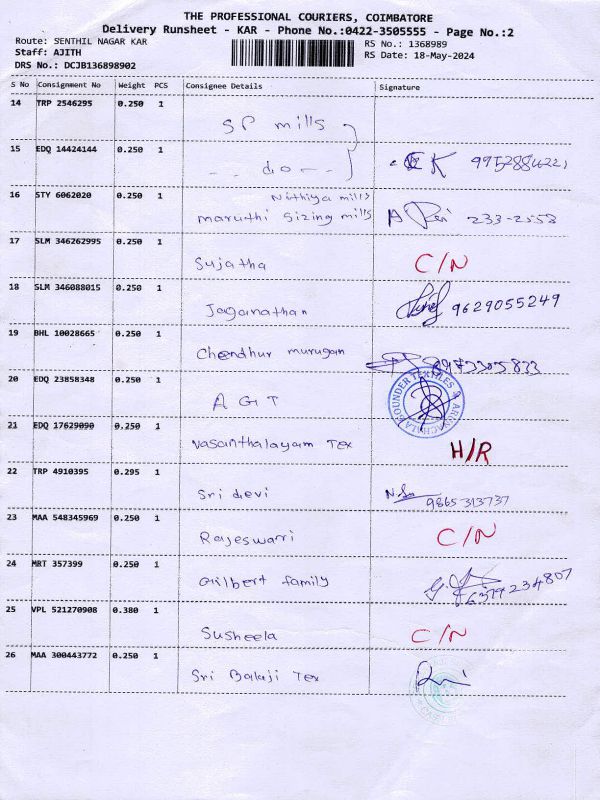 THE PROFESSIONAL COURIERS, COIMBATORE
Delivery Runsheet - KAR - Phone No.:0422-3505555 - Page No.:2
Route: SENTHIL NAGAR KAR
RS No.: 1368989
Staff: AJITH
RS Date: 18-May-2024
DRS No.: DCJB136898902
S No Consignment No Weight PCS Consignee Details Signature
14 TRP 2546295 0.250 1 SP mills
15 EDQ 14424144 0.250 1 -- do --
16 STY 6062020 0.250 1 Nithiya mills
maruthi sizing mills 233-2553
17 SLM 346262995 0.250 1 Sujatha C/N
18 SLM 346088015 0.250 1 Jaganathan 9629055249
19 BHL 10028665 0.250 1 Chendhur murugan
20 EDQ 23858348 0.250 1 A G T
21 EDQ 17629090 0.250 1 Vasanthalayam Tex H/R
22 TRP 4910395 0.295 1 Sri devi 9865313737
23 MAA 548345969 0.250 1 Rajeswarri C/N
24 MRT 357399 0.250 1 Gilbert family 6379234807
25 VPL 521270908 0.380 1 Susheela C/N
26 MAA 300443772 0.250 1 Sri Balaji Tex